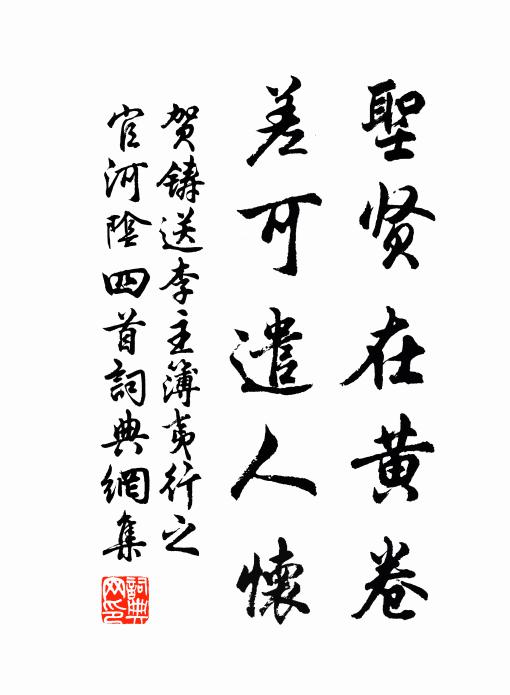 聖贤在黄卷
差可遣人懷
贺鑄送李主簿夷行之
官河陰四首詞典網集
詞典
网印